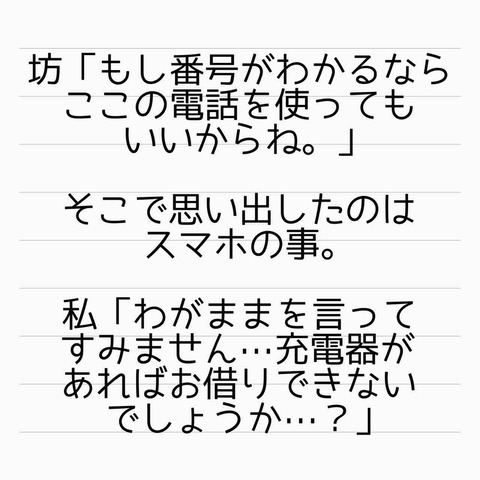 坊「もし番号がわかるなら
ここの電話を使っても
いいからね。」
そこで思い出したのは
スマホの事。
私「わがままを言って
すみません…充電器が
あればお借りできない
でしょうか…？」